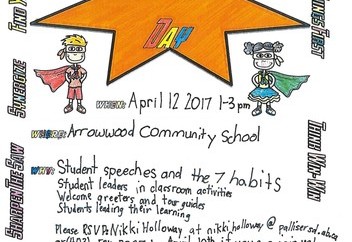 DAY
WHEN: April 12 2017 1-3 pm
WHERE: Arrowwood Community School
WHY: Student speeches and the 7 habits
Student leaders in classroom activities
Welcome greeters and tour guides
Students leading their learning
Please RSVP: Nikki Holloway at nikki.holloway@pallisersd.ab.ca
April 10th if you
SHARPEN THE SAW
SYNERGIZE
THINK WIN-WIN